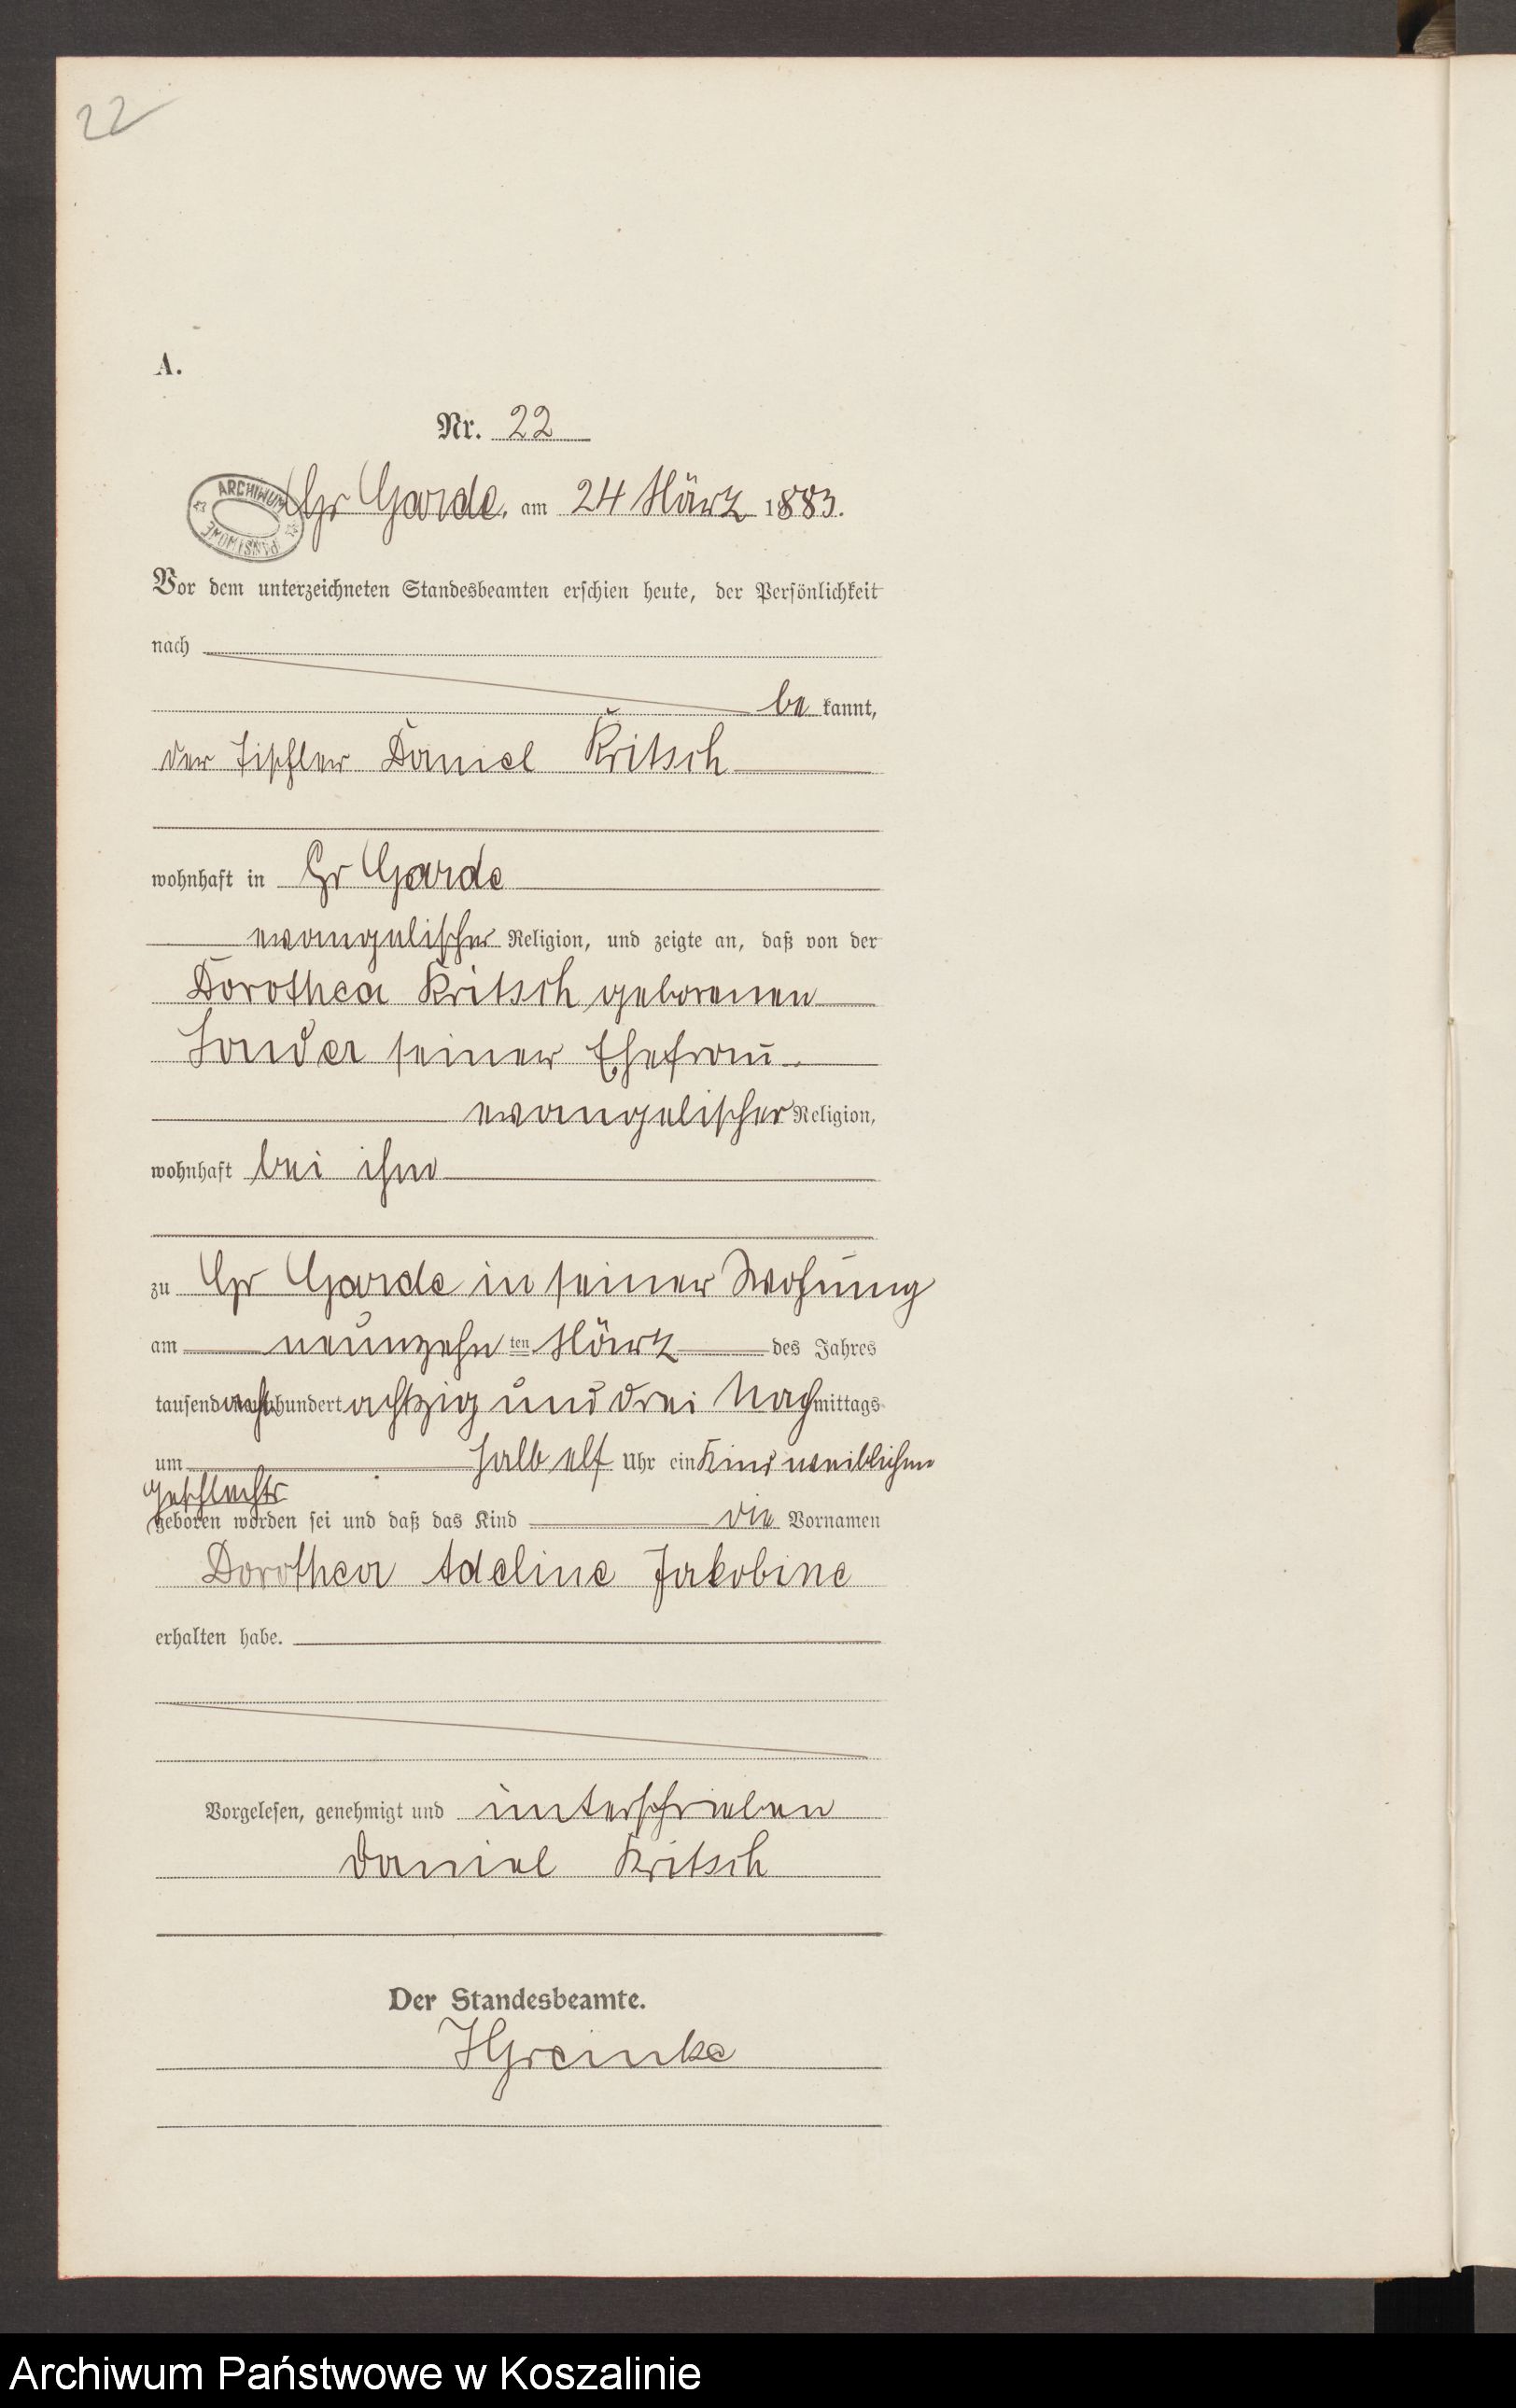 22
A.
Nr. 22
ARCHIWUM PAŃSTWOWE
Gr Garde, am 24 März 1883.
Vor dem unterzeichneten Standesbeamten erschien heute, der Persönlichkeit
nach
be kannt,
der Tischler Daniel Kritsch
wohnhaft in Gr Garde
evangelischer Religion, und zeigte an, daß von der
Dorothea Kritsch geborenen
seiner Ehefrau
evangelischer Religion,
wohnhaft bei ihm
zu Gr Garde in seiner Wohnung
am neunzehn ten März des Jahres
tausend acht hundert achtzig und drei Nach mittags
um halb elf Uhr ein Kind weiblichen
Geschlechts
geboren worden sei und daß das Kind die Vornamen
Dorothea Adeline Jakobine
erhalten habe.
Vorgelesen, genehmigt und unterschrieben
Daniel Kritsch
Der Standesbeamte.
Archiwum Państwowe w Koszalinie